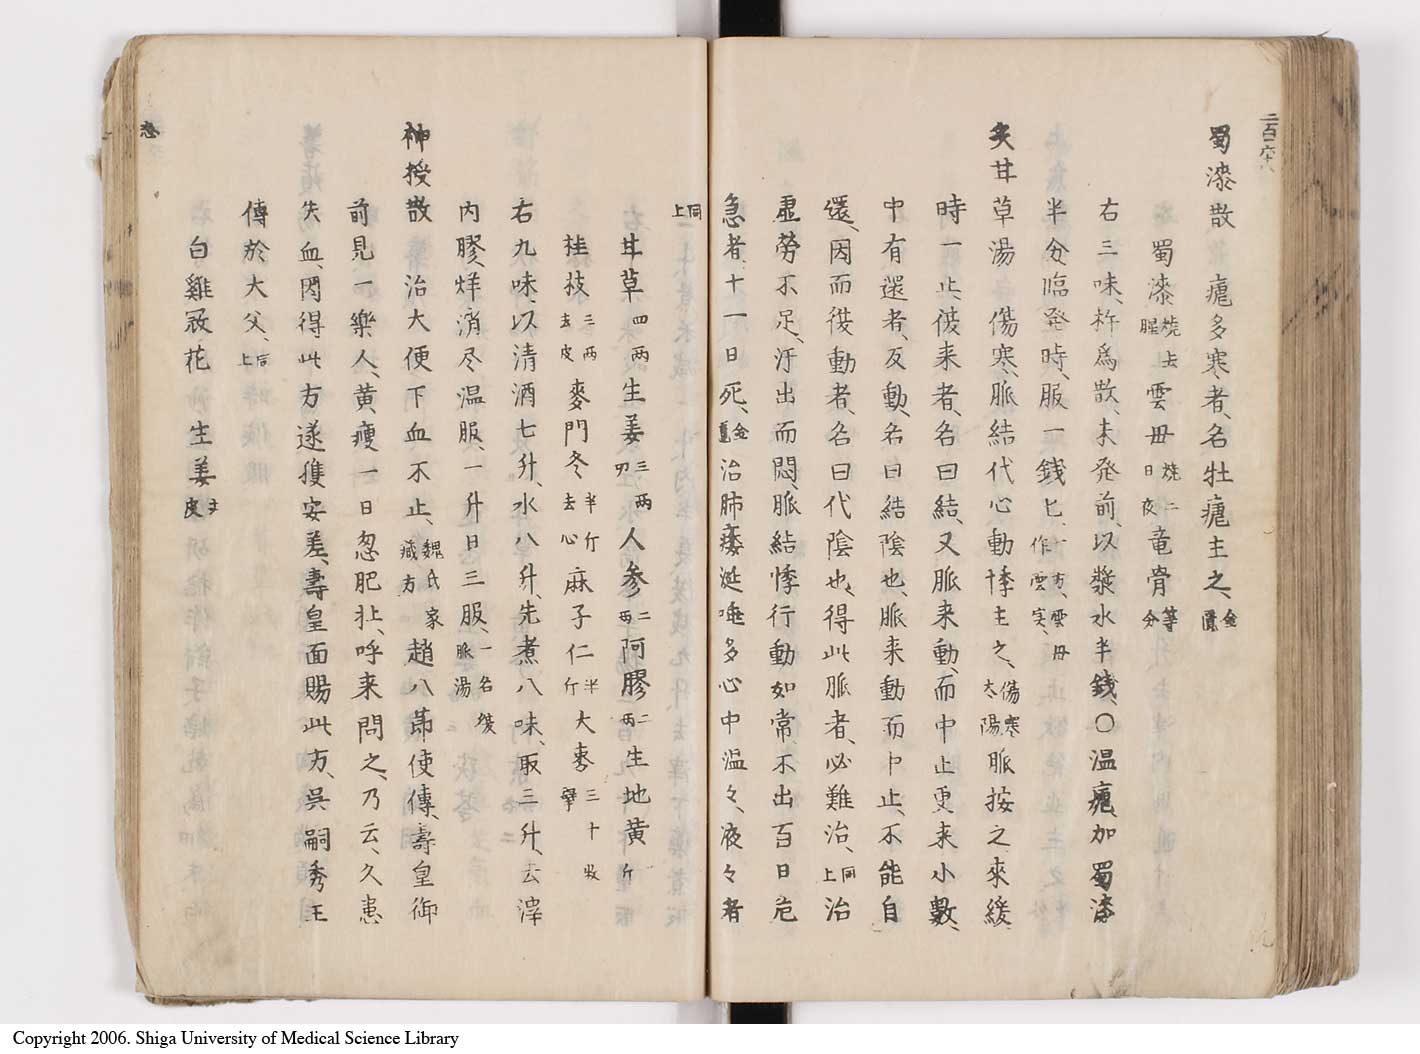 二百六十八
蜀漆散 瘧多寒者、名牡瘧主之、金匱
蜀漆 焼去腥 雲母 焼二日夜 竜骨 等分
右三味、杵為散、未発前、以漿水半錢、〇温瘧加蜀漆
半分、臨発時、服一錢匕、一方、雲母作雲実、
炙甘草湯 傷寒、脈結代心動悸主之、傷寒太陽 脈按之来緩
時一止、復来者、名曰結、又脈来動、而中止更来小数、
中有還者、反動、名曰結陰也、脈来動而中止、不能自
還、因而復動者、名曰代陰也、得此脈者、必難治、同上 治
虚労不足、汗出而悶、脈結悸行動如常、不出百日危
急者、十一日死、金匱 治肺痿涎唾多心中温々、液々者
同上
甘草 四両 生姜 三両切 人参 二両 阿膠 二両 生地黄 斤
桂枝 三両去皮 麥門冬 半斤去心 麻子仁 半斤 大棗 三十枚擘
右九味、以清酒七升、水八升、先煮八味、取三升、去滓
内膠、烊消尽温服、一升日三服、一名復脈湯
神授散 治大便下血不止、魏氏家蔵方 趙八節使傳、壽皇御
前見一楽人、黄痩一日忽肥壮、呼来問之、乃云、久患
失血、閃得此方遂獲安差、壽皇面賜此方、呉嗣秀王
傳於大父、同上
白雞冠花 生姜 去皮